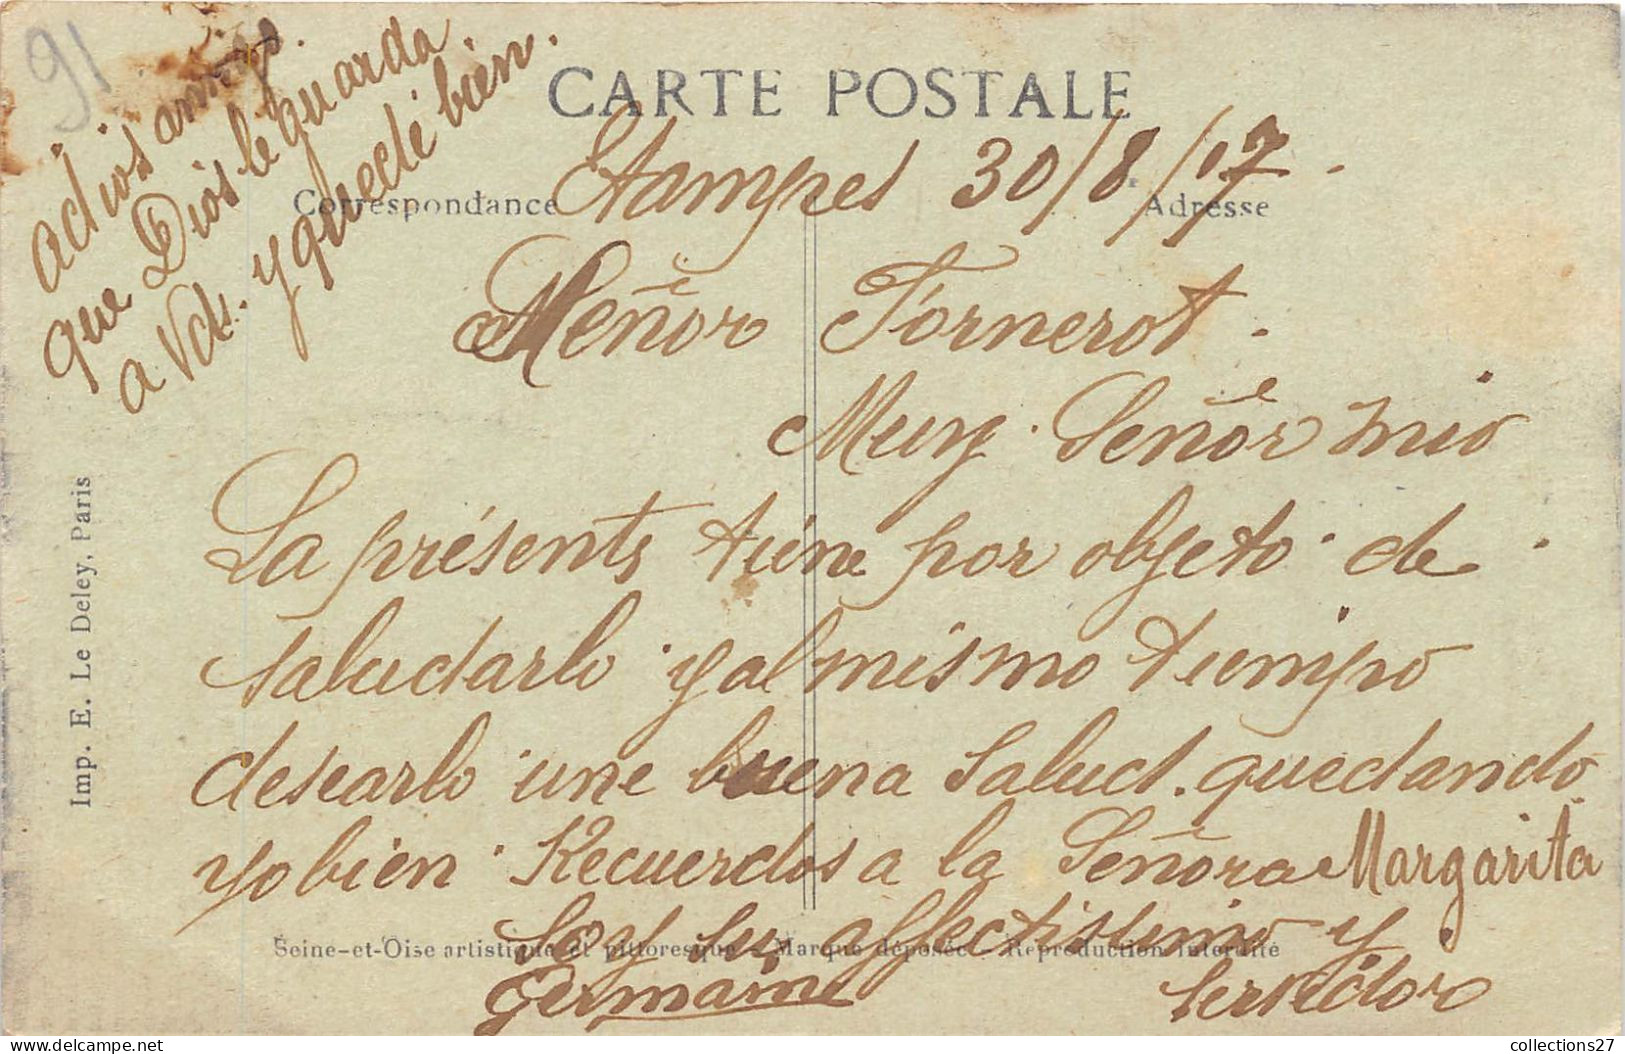 91
CARTE POSTALE
Correspondance
Adresse
Etampes 30/8/17.
Señor Fornerot.
Muy Señor mio
La présente tiéne por objeto de
saludarlo y al mismo tiempo
desearlo une buena salud. quedando
yo bien. Recuerdos a la Señora Margarita
Soy su affectisimo y
Germaine
Imp. E. Le Deley, Paris
Seine-et-Oise artistique et pittoresque - Marque déposée - Reproduction interdite
adios amigo.
que Dios le guarda
a Vds. y quedé bien.
collections27